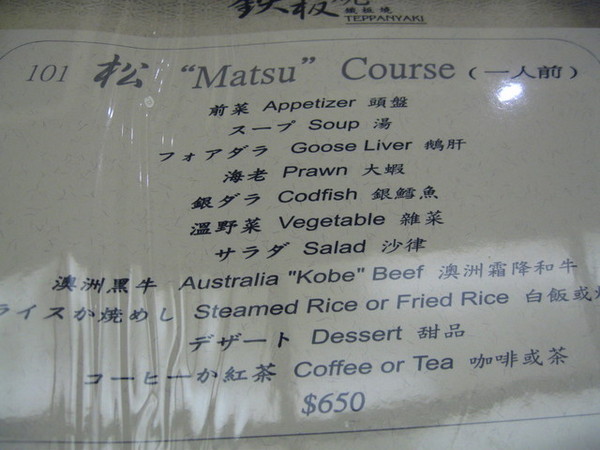 鉄板焼
鐵板燒
TEPPANYAKI
101 松 “Matsu” Course (一人前)
前菜 Appetizer 頭盤
スープ Soup 湯
フォアダラ Goose Liver 鵝肝
海老 Prawn 大蝦
銀ダラ Codfish 銀鱈魚
溫野菜 Vegetable 雜菜
サラダ Salad 沙律
澳洲黒牛 Australia "Kobe" Beef 澳洲霜降和牛
ライスか焼めし Steamed Rice or Fried Rice 白飯或
デザート Dessert 甜品
コーヒーか紅茶 Coffee or Tea 咖啡或茶
$650